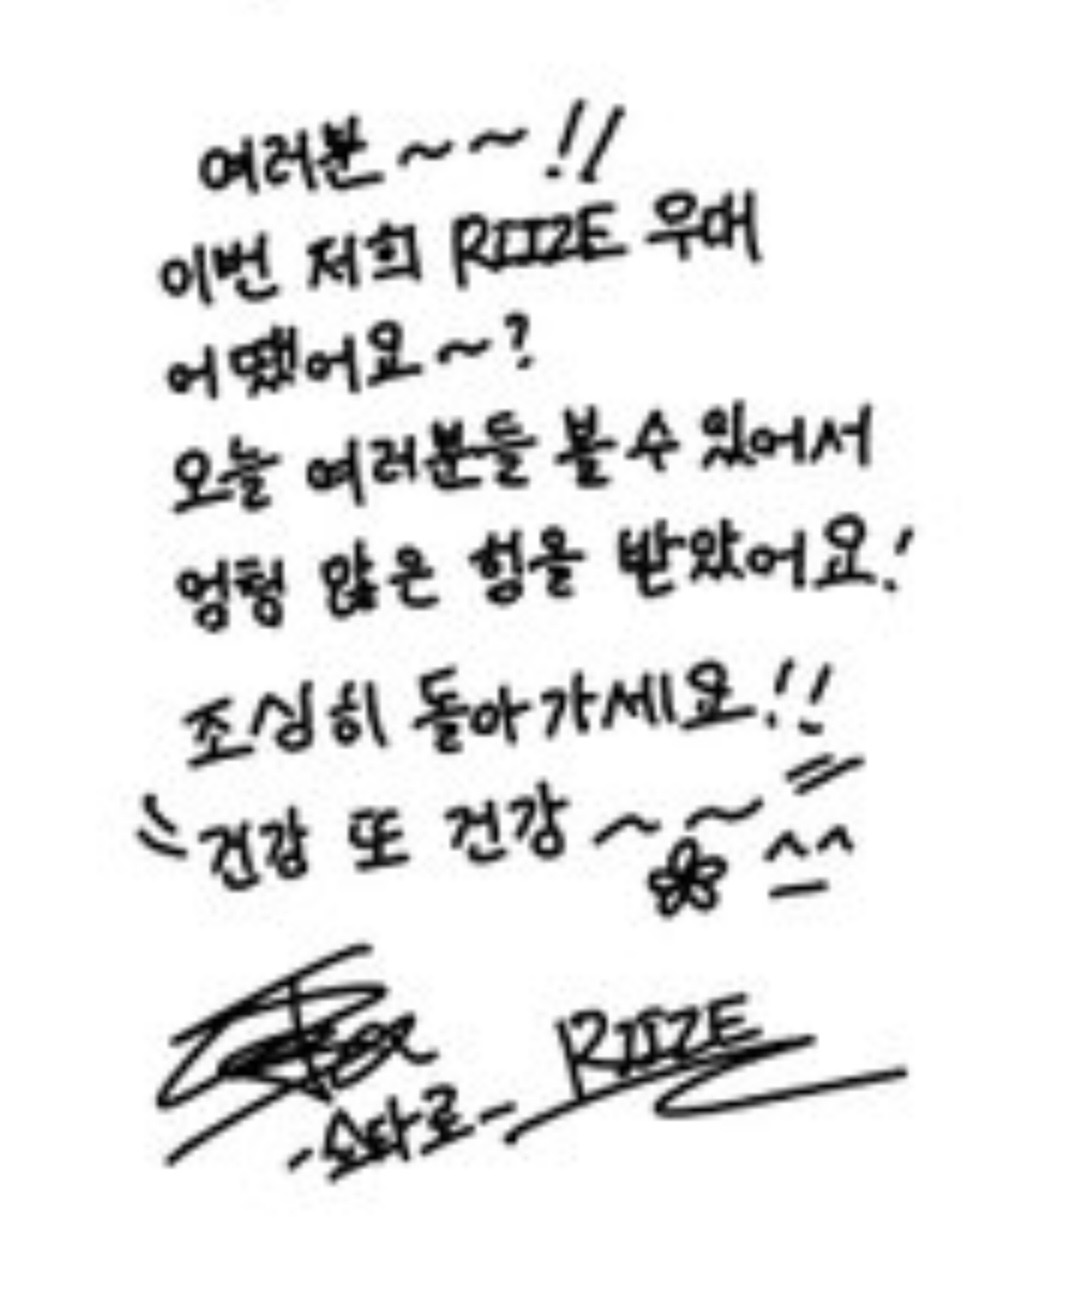 여러분~~!!
이번 저희 RIIZE 우머
어땠어요~?
오늘 여러분들 볼 수 있어서
엄청 많은 힘을 받았어요!
조심히 돌아가세요!!
건강 또 건강~~ ^^
RIIZE
-쇼타로-